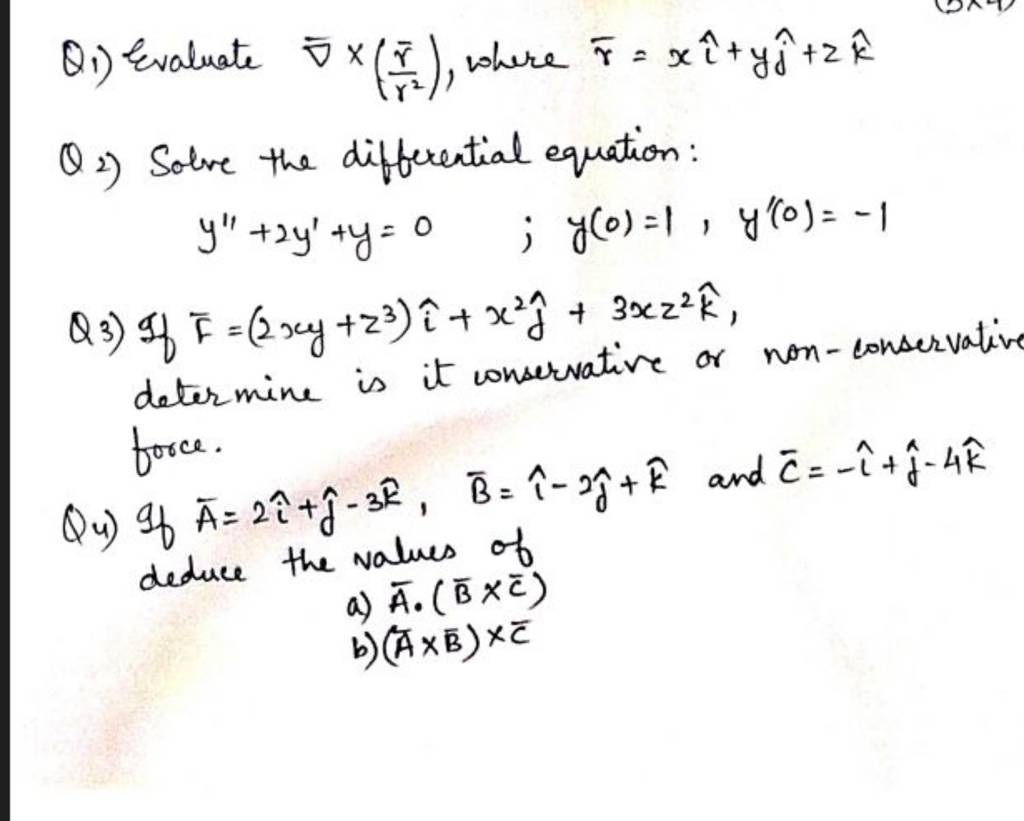 Q1) Evaluate ∇̄ × (r̄/r²), where r̄ = x î + y ĵ + z k̂
Q2) Solve the differential equation:
y'' + 2y' + y = 0 ; y(0) = 1 , y'(0) = -1
Q3) If F̄ = (2xy + z³) î + x² ĵ + 3xz² k̂,
determine is it conservative or non-conservative
force.
Q4) If Ā = 2î + ĵ - 3k̂, B̄ = î - 2ĵ + k̂ and C̄ = -î + ĵ - 4k̂
deduce the values of
a) Ā. (B̄ × C̄)
b) (Ā × B̄) × C̄